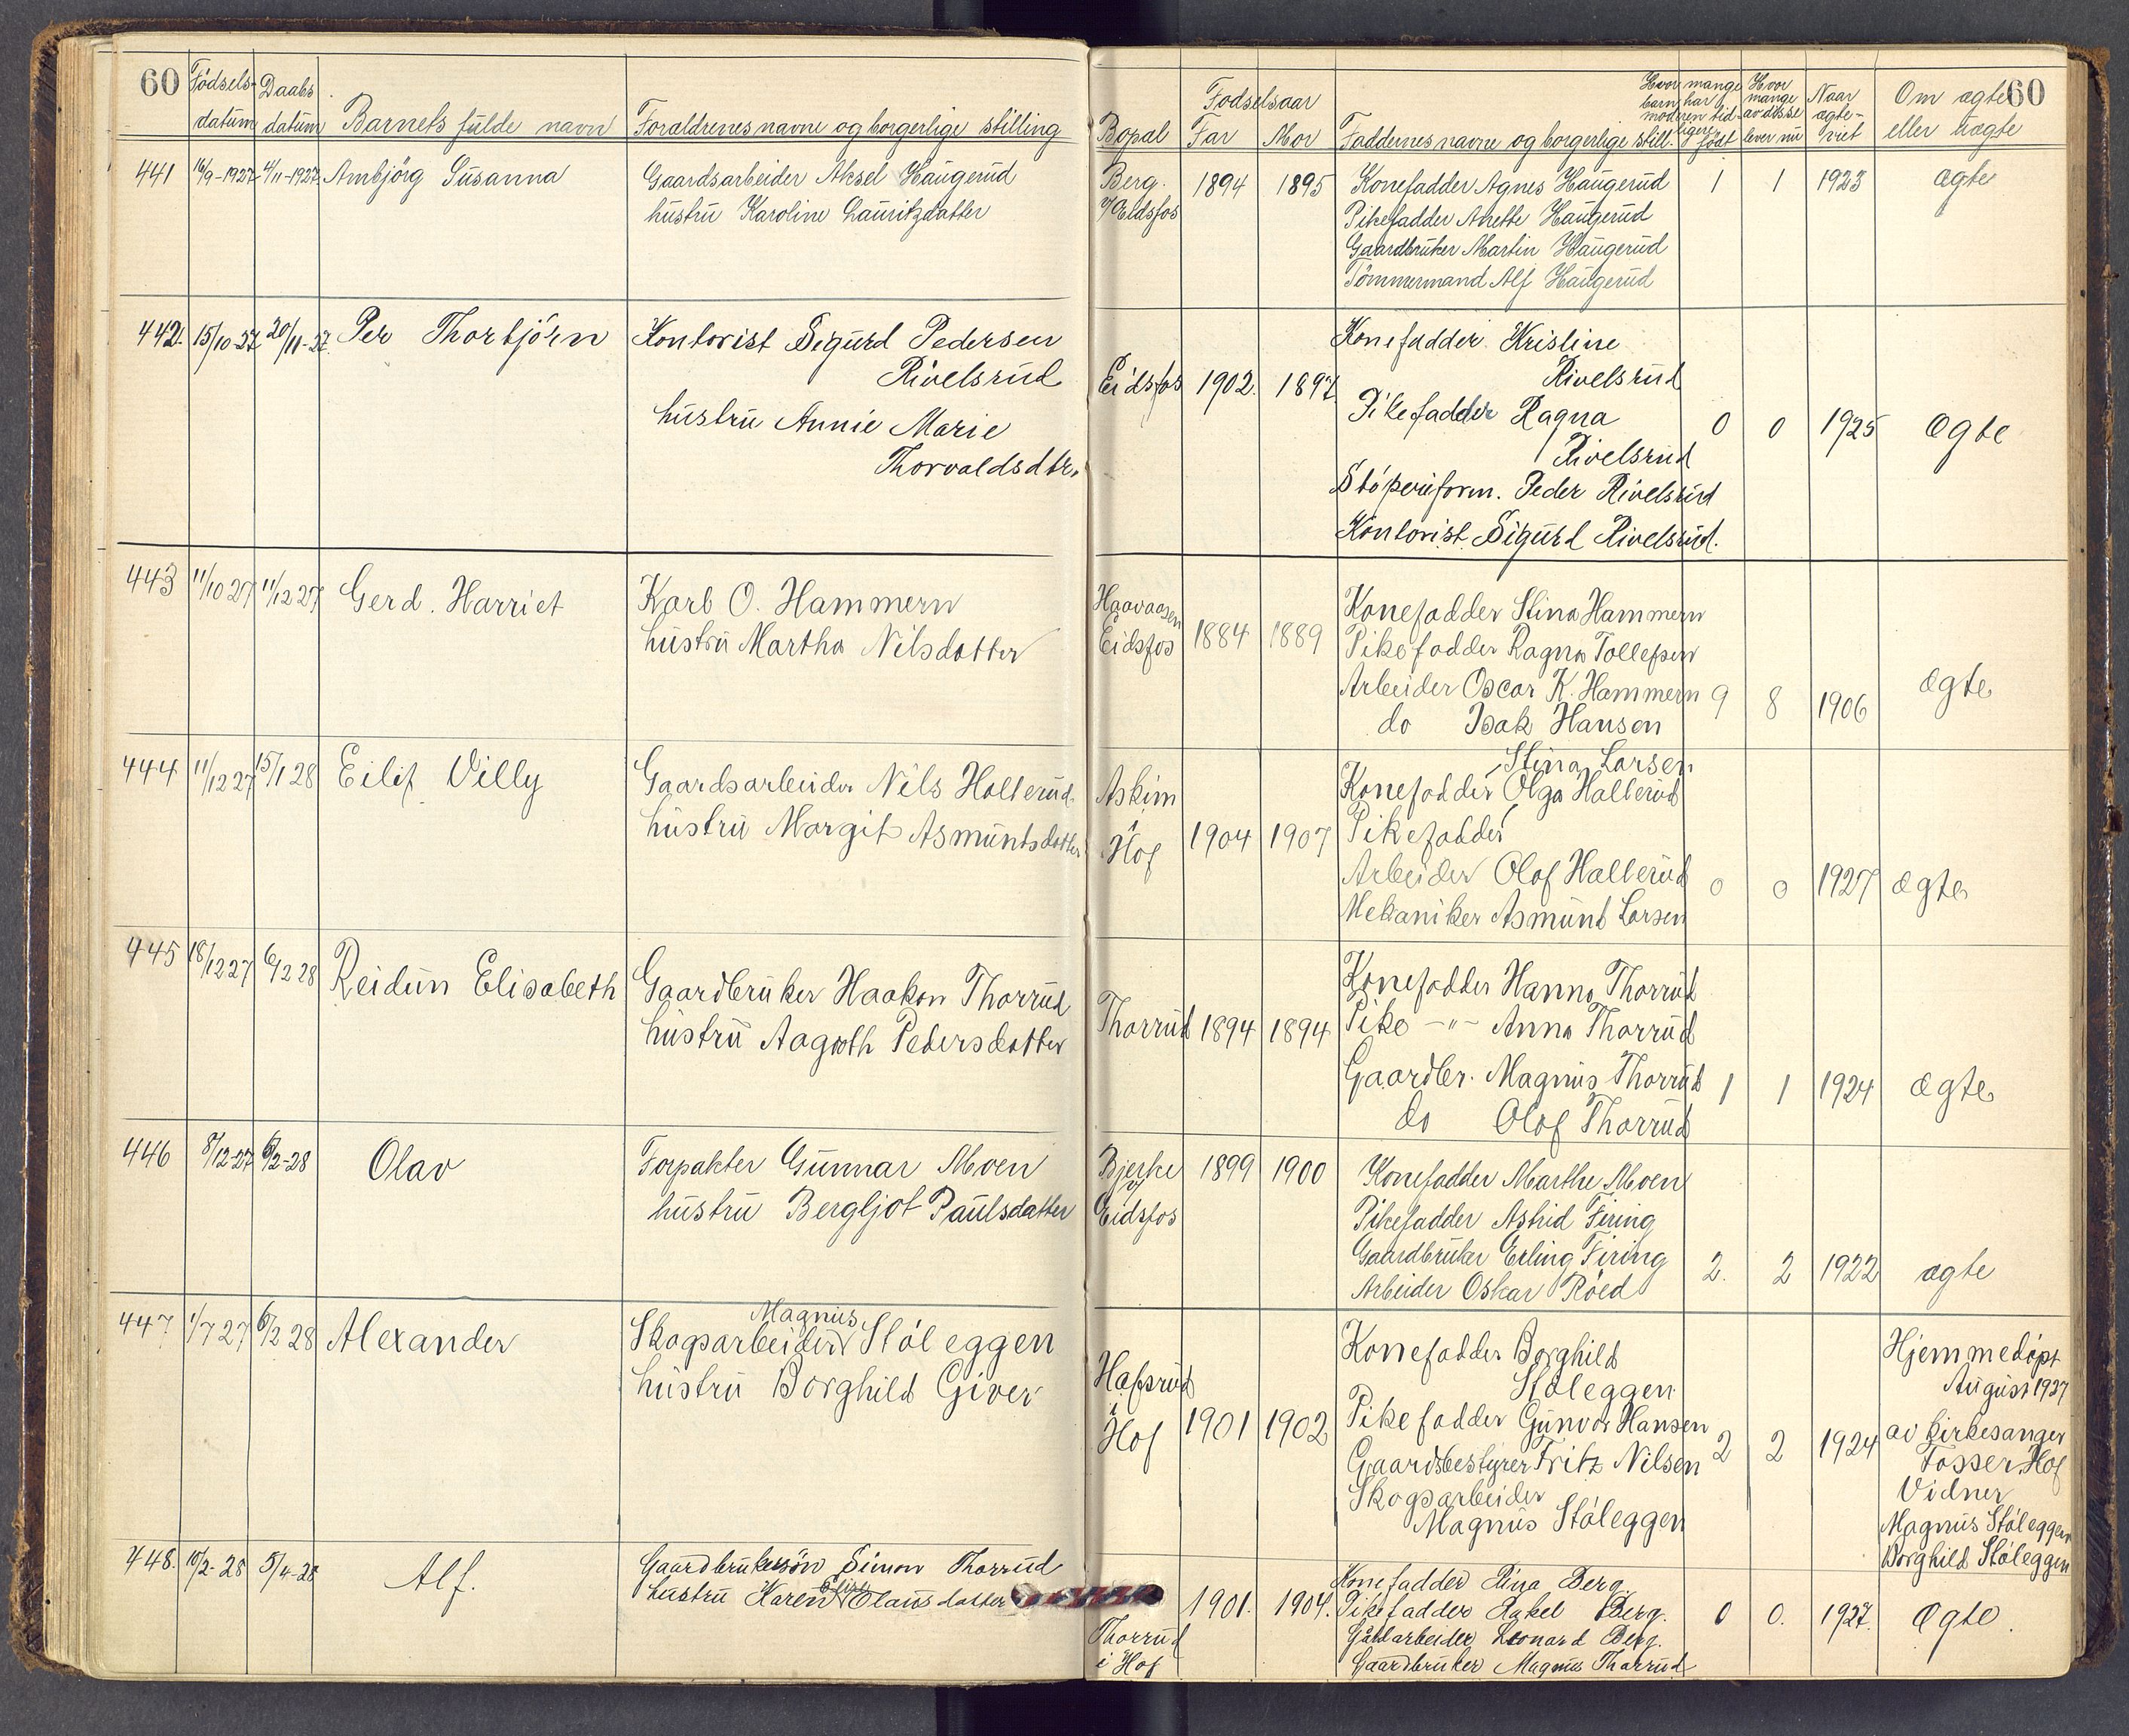 60 Fødsels-datum Daabs datum Barnets fulde navn Foraldrenes navne og borgerlige stilling
Bopæl Fødselsaar Far Mor Faddernes navne og borgerlige still. Hvor mange barn har moderen tidligere født Hvor mange av disse lever nu Naar ægteviet Om ægte eller uægte 60
441 16/9-1927 4/11-1927 Ambjörg Susanna
Gaardsarbeider Aksel Haugerud
hustru Karoline Lauritzdatter
Berg. v/Eidsfos 1894 1895
Konefadder Agnes Haugerud 1 1 1923 ægte
Pikefadder Anette Haugerud
Gaardbruker Martin Haugerud
Tömmermand Alf Haugerud
442. 15/10-27 20/11-27 Per Thorbjörn
Kontorist Sigurd Pedersen
Rivelsrud
hustru Annie Marie
Thorvaldsdtr.
Eidsfos 1902. 1897.
Konefadder Kristine
Rivelsrud
Pikefadder Ragna
Rivelsrud
0 0 1925 Ægte
Støperiform. Peder Rivelsrud
Kontorist Sigurd Rivelsrud.
443 11/10 27 11/12 27 Gerd. Harriet
Karl O. Hammern
hustru Martha Nilsdatter
Haavaasen Eidsfos 1884 1889
Konefadder Stina Hammern
Pikefadder Ragna Tollefsen
Arbeider Oscar K. Hammern 9 8 1906 ægte
do Isak Hansen
444 11/12 27 15/1 28 Eilif Villy
Gaardsarbeider Nils Hallerud
hustru Margit Asmuntsdatter
Askim i Hof 1904 1907
Stina Larsen
Konefadder Olga Hallerud
Pikefadder
Arbeider Olaf Hallerud 0 0 1927 ægte
Mekaniker Asmunt Larsen
445 18/12 27 6/2 28 Reidun Elisabeth
Gaardbruker Haakon Thorrud
hustru Aagoth Pedersdatter
Thorrud 1894 1894
Konefadder Hanna Thorrud
Pike -"- Anna Thorrud
Gaardbr. Magnus Thorrud 1 1 1924 ægte
do Olaf Thorrud
446 8/12-27 6/2-28 Olav
Forpakter Gunnar Moen
hustru Bergljot Paulsdatter
Bjerke v/ Eidsfos 1899 1900
Konefadder Marthe Moen
Pikefadder Astrid Firing
Gaardbruker Erling Firing 2. 2 1922 ægte
Arbeider Oskar Röed
447 1/7 27 6/2 28 Alexander
Magnus
Skogsarbeider Støleggen
hustru Borghild Giver
Hafsrud i Hof 1901 1902
Konefadder Borghild
Støleggen
Pikefadder Gunvor Hansen
Gaardsbestyrer Fritz Nilsen
Skogsarbeider
Magnus Støleggen
2 2 1924
Hjemmedøpt
August 1927
av kirkesanger
Fosser, Hof
Vidner
Magnus Støleggen
Borghild Støleggen
448. 10/2-28 5/4-28 Alf.
Gaardbrukersön Simon Thorrud
hustru Karen Olausdatter
Thorrud i Hof 1901. 1904.
Konefadder Rina Berg.
Pikefadder Rakel Berg. 0 0. 1927. Ægte.
Gårdarbeider Leonard Berg.
Gaardbruker Magnus Thorrud